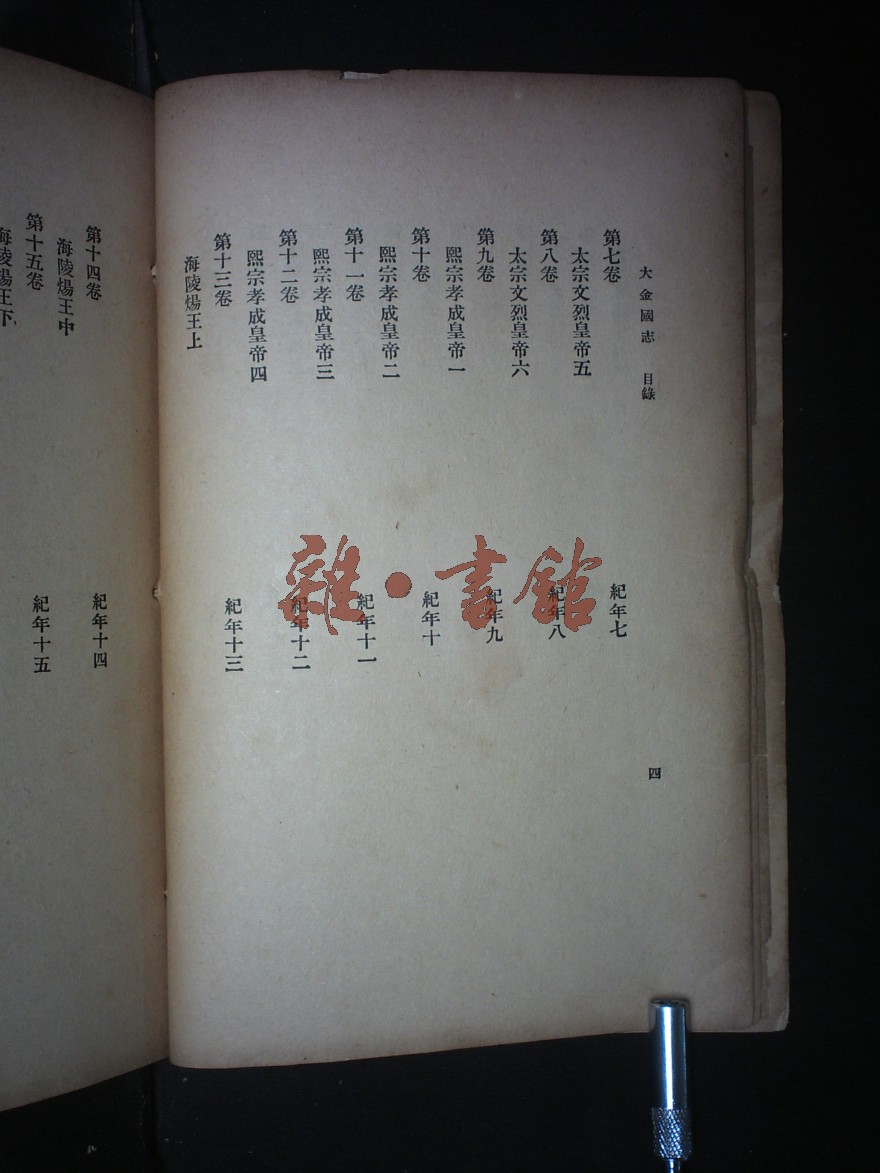 大金國志 目錄
四
第七卷 紀年七
太宗文烈皇帝五
第八卷 紀年八
太宗文烈皇帝六
第九卷 紀年九
熙宗孝成皇帝一
第十卷 紀年十
熙宗孝成皇帝二
第十一卷 紀年十一
熙宗孝成皇帝三
第十二卷 紀年十二
熙宗孝成皇帝四
第十三卷 紀年十三
海陵煬王上
第十四卷 紀年十四
海陵煬王中
第十五卷 紀年十五
海陵煬王下
雜·書館